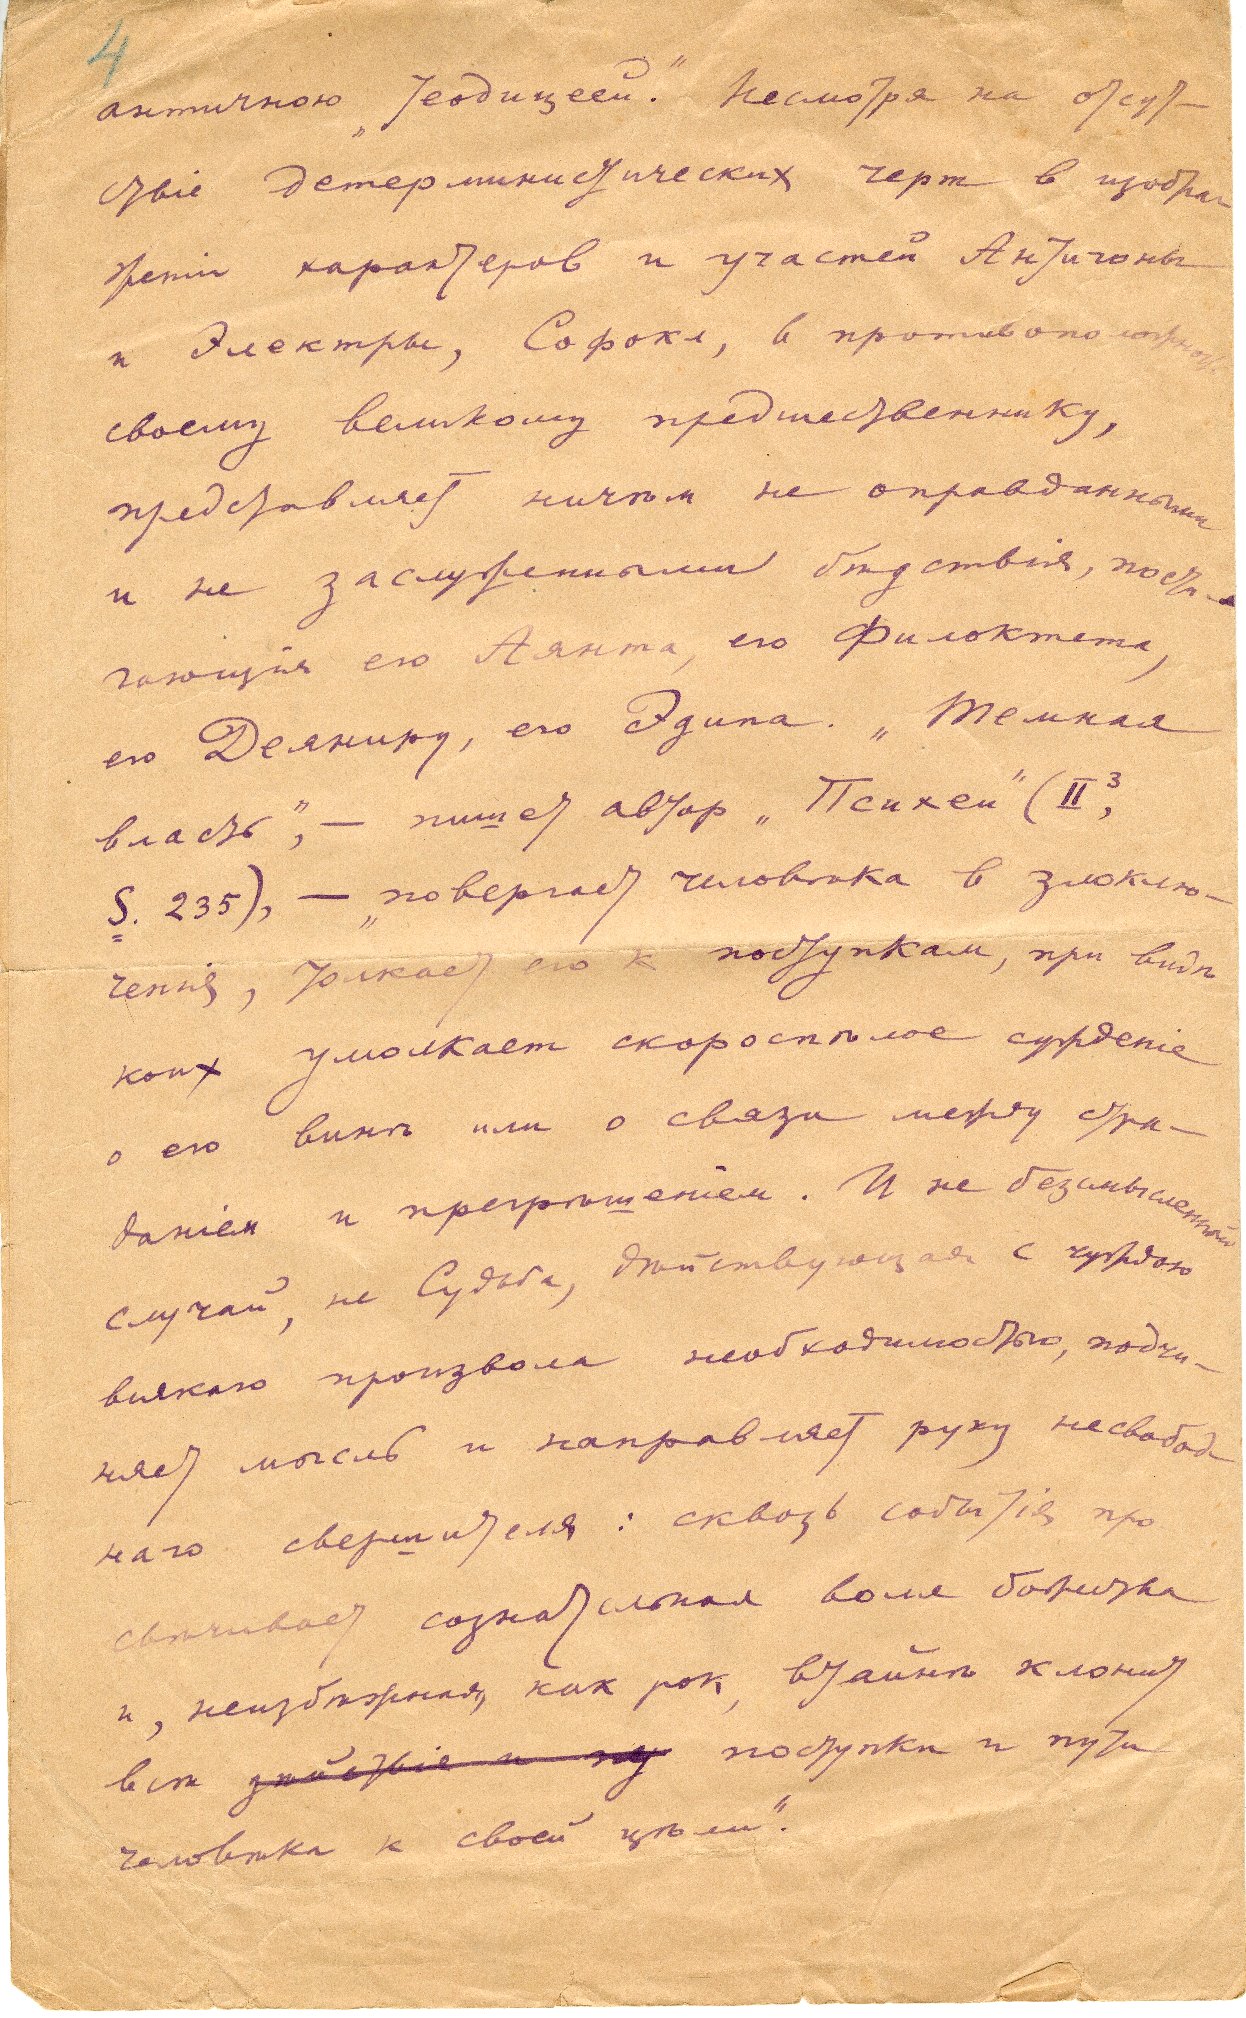 4
античною „теодицеей“. Несмотря на отсут-
ствіе детерминистических черт в изобра-
женіи характеров и участей Антигоны
и Электры, Софокл, в противоположность
своему великому предшественнику,
представляет ничѣм не оправданными
и не заслуженными бѣдствія, пости-
гающія его Аянта, его Филоктета,
его Деяниру, его Эдипа. „Темная
власть“, — пишет автор „Психеи“ (II³,
S. 235), — „повергает человѣка в злоклю-
ченія, толкает его к поступкам, при видѣ
коих умолкает скороспѣлое сужденіе
о его винѣ или о связи между стра-
даніем и прегрѣшеніем. И не безсмысленный
случай, не Судьба, дѣйствующая с чуждою
всякаго произвола необходимостью, подчи-
няет мысль и направляет руку несвобод-
наго свершителя: сквозь событія про
свѣчивает сознательная воля божества
и, неизбѣжная, как рок, втайнѣ клонит
всѣ дѣйствія и пу поступки и пути
человѣка к своей цѣли“.